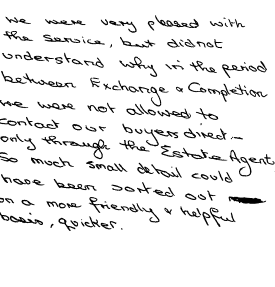 We were very pleased with
the service, but did not
understand why in the period
between Exchange & Completion
we were not allowed to
contact our buyers direct –
only through the Estate Agent.
So much small detail could
have been sorted out
on a more friendly & helpful
basis, quicker.